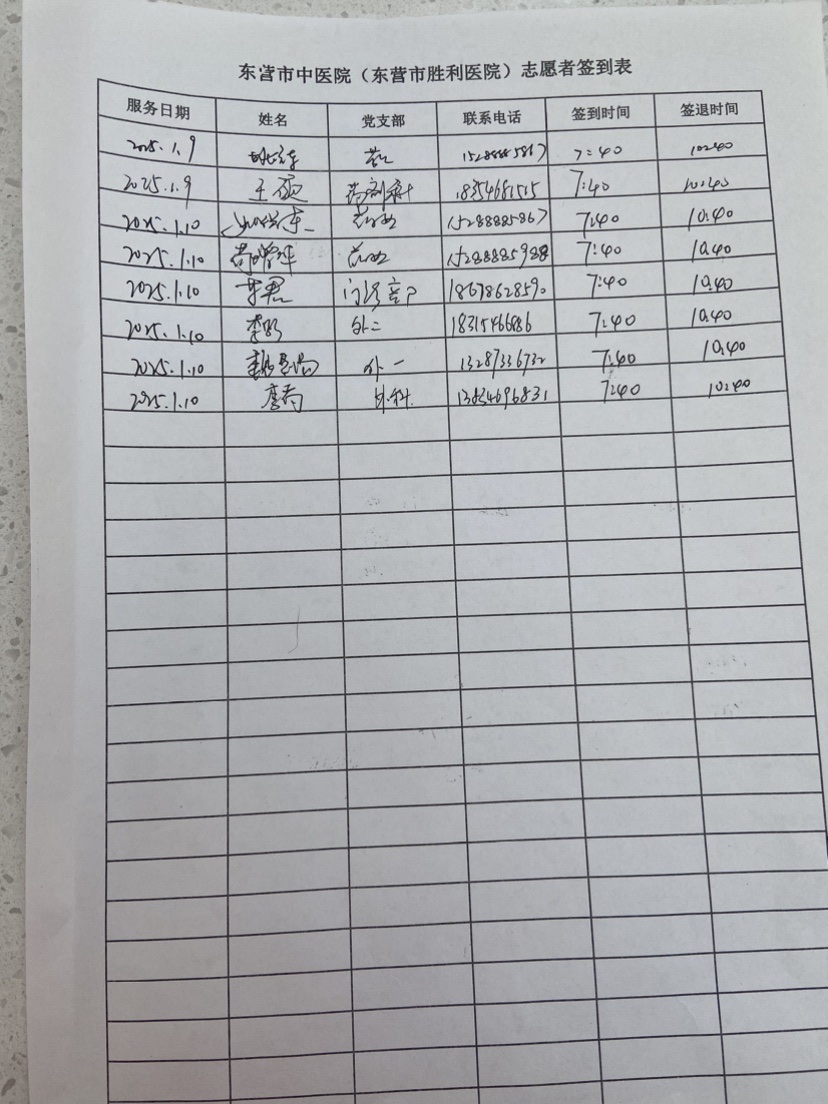 东营市中医院（东营市胜利医院）志愿者签到表
服务日期 姓名 党支部 联系电话 签到时间 签退时间
2025.1.9 15288885867 7:40 10:40
2025.1.9 王 药剂科 18354681515 7:40 10:40
2025.1.10 15288885867 7:40 10:40
2025.1.10 15288885988 7:40 10:40
2025.1.10 李君 门诊 18678628590 7:40 10:40
2025.1.10 李 外二 18315466686 7:40 10:40
2025.1.10 外一 13287336732 7:40 10:40
2025.1.10 外科 13854696831 7:40 10:40